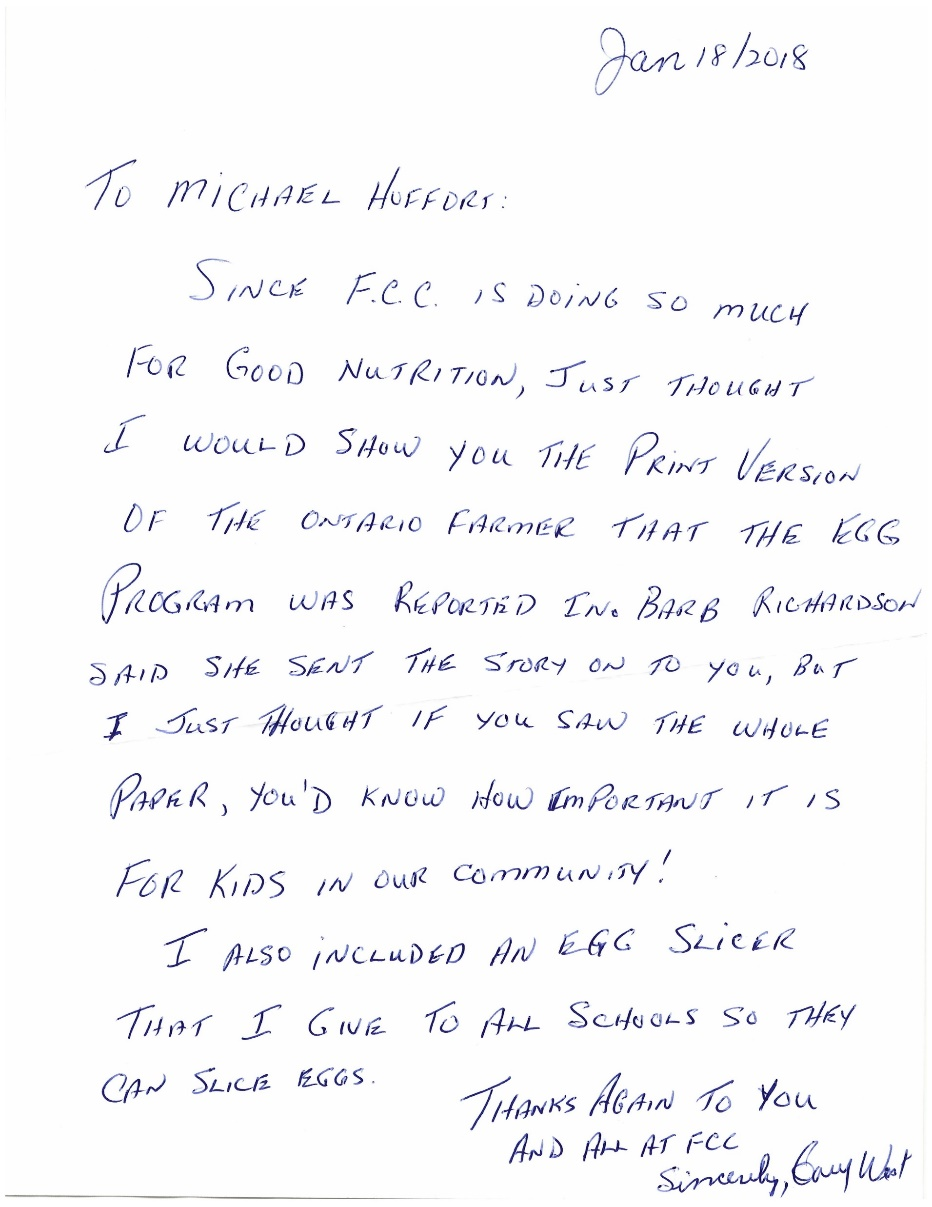 Jan 18/2018
TO MICHAEL HOFFORT:
SINCE F.C.C. IS DOING SO MUCH
FOR GOOD NUTRITION, JUST THOUGHT
I WOULD SHOW YOU THE PRINT VERSION
OF THE ONTARIO FARMER THAT THE EGG
PROGRAM WAS REPORTED IN. BARB RICHARDSON
SAID SHE SENT THE STORY ON TO YOU, BUT
I JUST THOUGHT IF YOU SAW THE WHOLE
PAPER, YOU'D KNOW HOW IMPORTANT IT IS
FOR KIDS IN OUR COMMUNITY!
I ALSO INCLUDED AN EGG SLICER
THAT I GIVE TO ALL SCHOOLS SO THEY
CAN SLICE EGGS.
THANKS AGAIN TO YOU
AND ALL AT FCC
Sincerely, Gary West